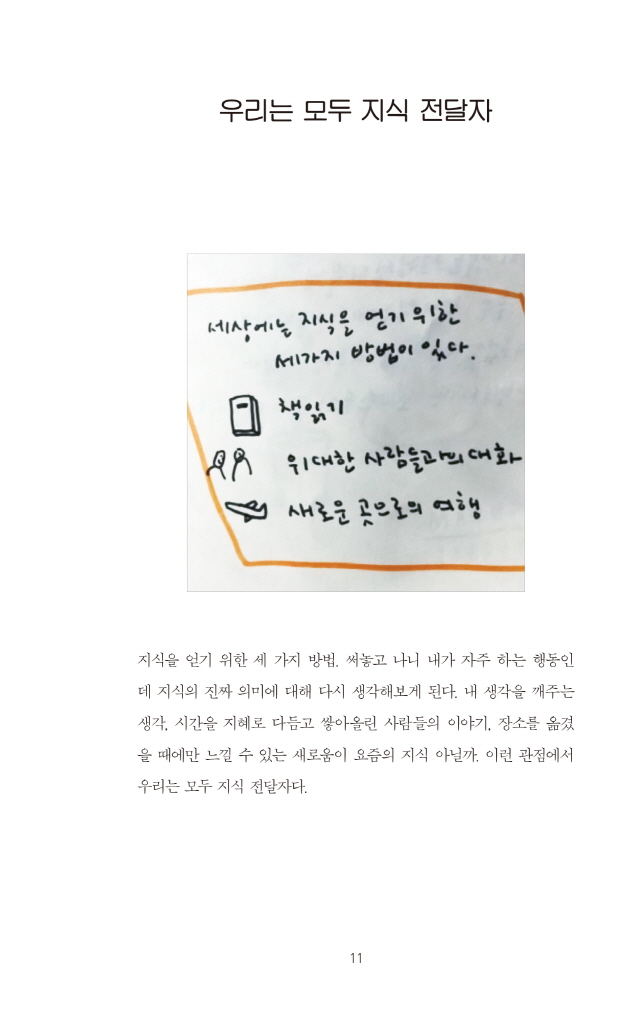 우리는 모두 지식 전달자
세상에는 지식을 얻기 위한
세가지 방법이 있다.
책읽기
위대한 사람들과의 대화
새로운 곳으로의 여행
지식을 얻기 위한 세 가지 방법. 써놓고 나니 내가 자주 하는 행동인
데 지식의 진짜 의미에 대해 다시 생각해보게 된다. 내 생각을 깨주는
생각, 시간을 지혜로 다듬고 쌓아올린 사람들의 이야기, 장소를 옮겼
을 때에만 느낄 수 있는 새로움이 요즘의 지식 아닐까. 이런 관점에서
우리는 모두 지식 전달자다.
11